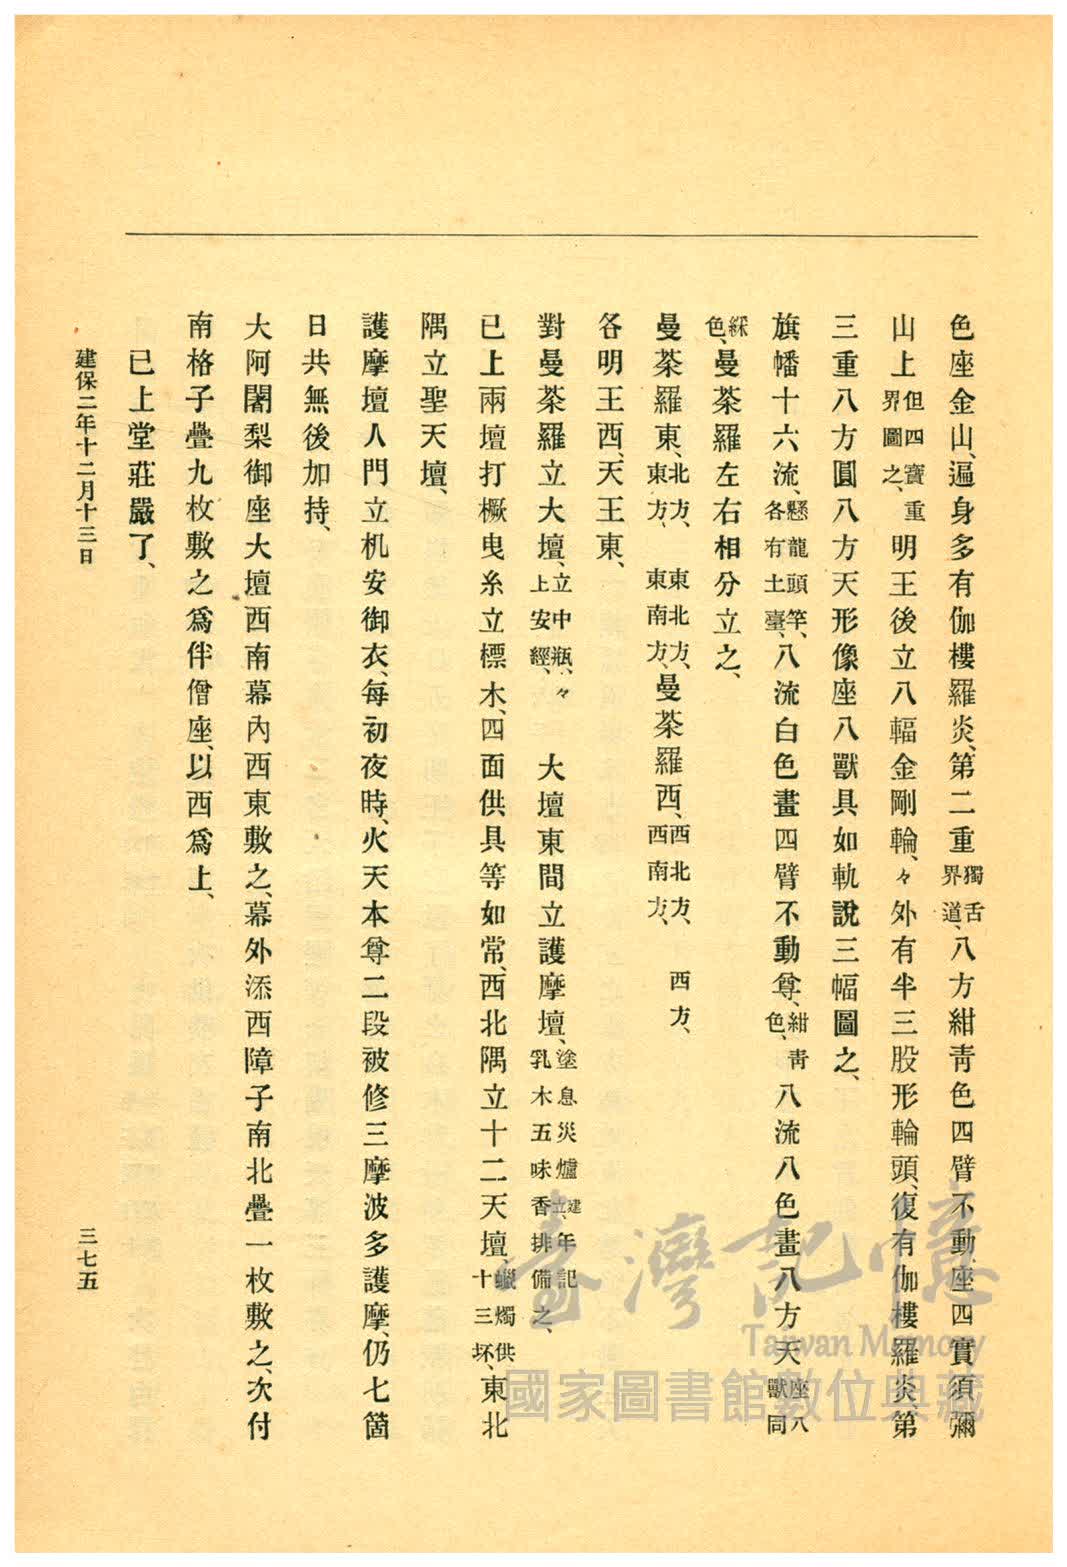 色座金山、遍身多有伽樓羅炎、第二重獨舌界道、八方紺青色四臂不動、座四寶須彌
山上但四寶重界圖之、明王後立八輻金剛輪、々外有半三股形輪頭、復有伽樓羅炎、第
三重八方圓八方天形像座八獸具如軌說三幅圖之、
旗幡十六流、懸龍頭竿、各有土臺、八流白色畫四臂不動尊、紺青色、八流八色畫八方天座八獸同
綵色、曼荼羅左右相分立之、
曼荼羅東、北方、東方、東北方、東南方、曼荼羅西、西北方、西南方、西方、
各明王西、天王東、
對曼荼羅立大壇、立中瓶、々上安經、大壇東間立護摩壇、塗息災爐建立、年記乳木五味香排備之、
已上兩壇打橛曳糸立標木、四面供具等如常、西北隅立十二天壇、蠟燭供十三坏、東北
隅立聖天壇、
護摩壇人門立机安御衣、每初夜時、火天本尊二段被修三摩波多護摩、仍七箇
日共無後加持、
大阿闍梨御座大壇西南幕內西東敷之、幕外添西障子南北疊一枚敷之、次付
南格子疊九枚敷之爲伴僧座、以西爲上、
已上堂莊嚴了、
建保二年十二月十三日
三七五
臺灣記憶
Taiwan Memory
國家圖書館數位典藏